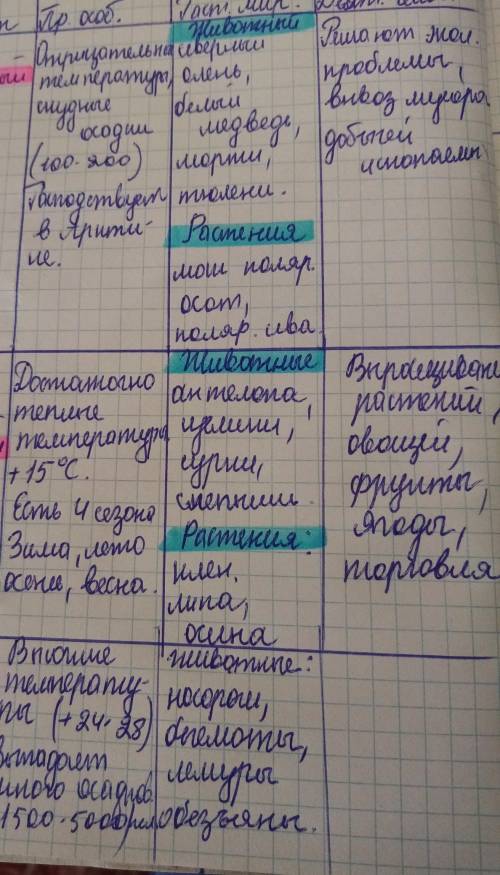 Пр. особ.
Раст. мир.
Отрицательна
температуры,
скудные
осадки
(100-200)
Господствует
в Аркти-
ке.
Животный
северный
олень,
белый
медведь,
моржи,
тюлени.
Растения
мох поляр.
осот,
поляр. ива.
Решают экол.
проблемы,
вывоз мусора
добычей
ископаемы
Достаточно
теплые
температуры
+15°С.
Есть 4 сезона
Зима, лето
осень, весна.
Животные
антилопа,
суслики,
сурки,
слепыши.
Растения:
клен.
липа,
осина
Выращиван
растений,
овощей,
фрукты,
ягоды,
торговля
Высокие
температу-
ры (+24-28)
Выпадает
много осадков
1500-5000мм
животные:
носороги,
бегемоты,
лемуры
обезьяны.